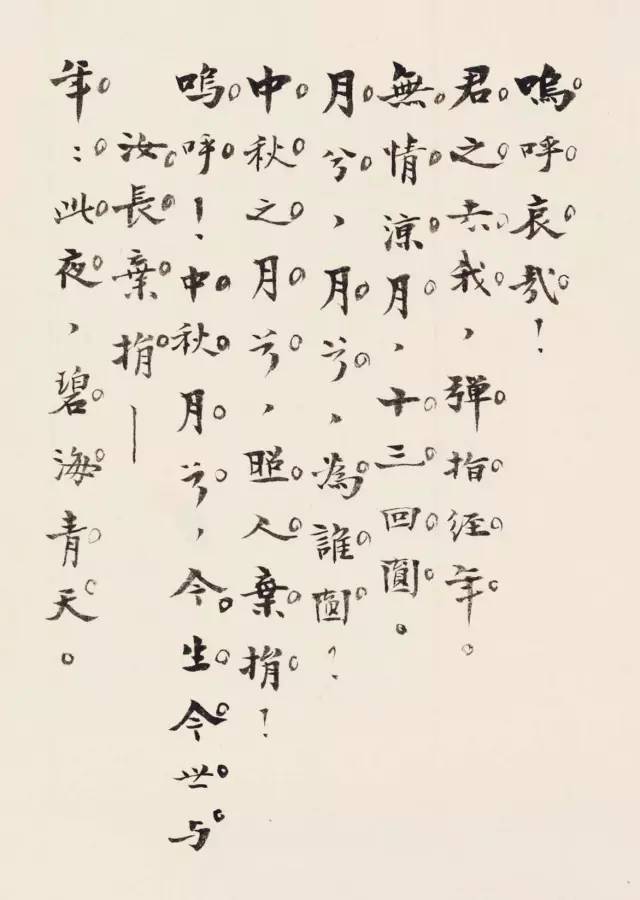 嗚呼哀哉！
君之去我，彈指經年。
無情涼月，十三回圓。
月兮，月兮，為誰圓？
中秋之月兮，照人棄捐！
嗚呼！中秋月兮，今生今世与
汝長棄捐—
年：此夜，碧海青天。